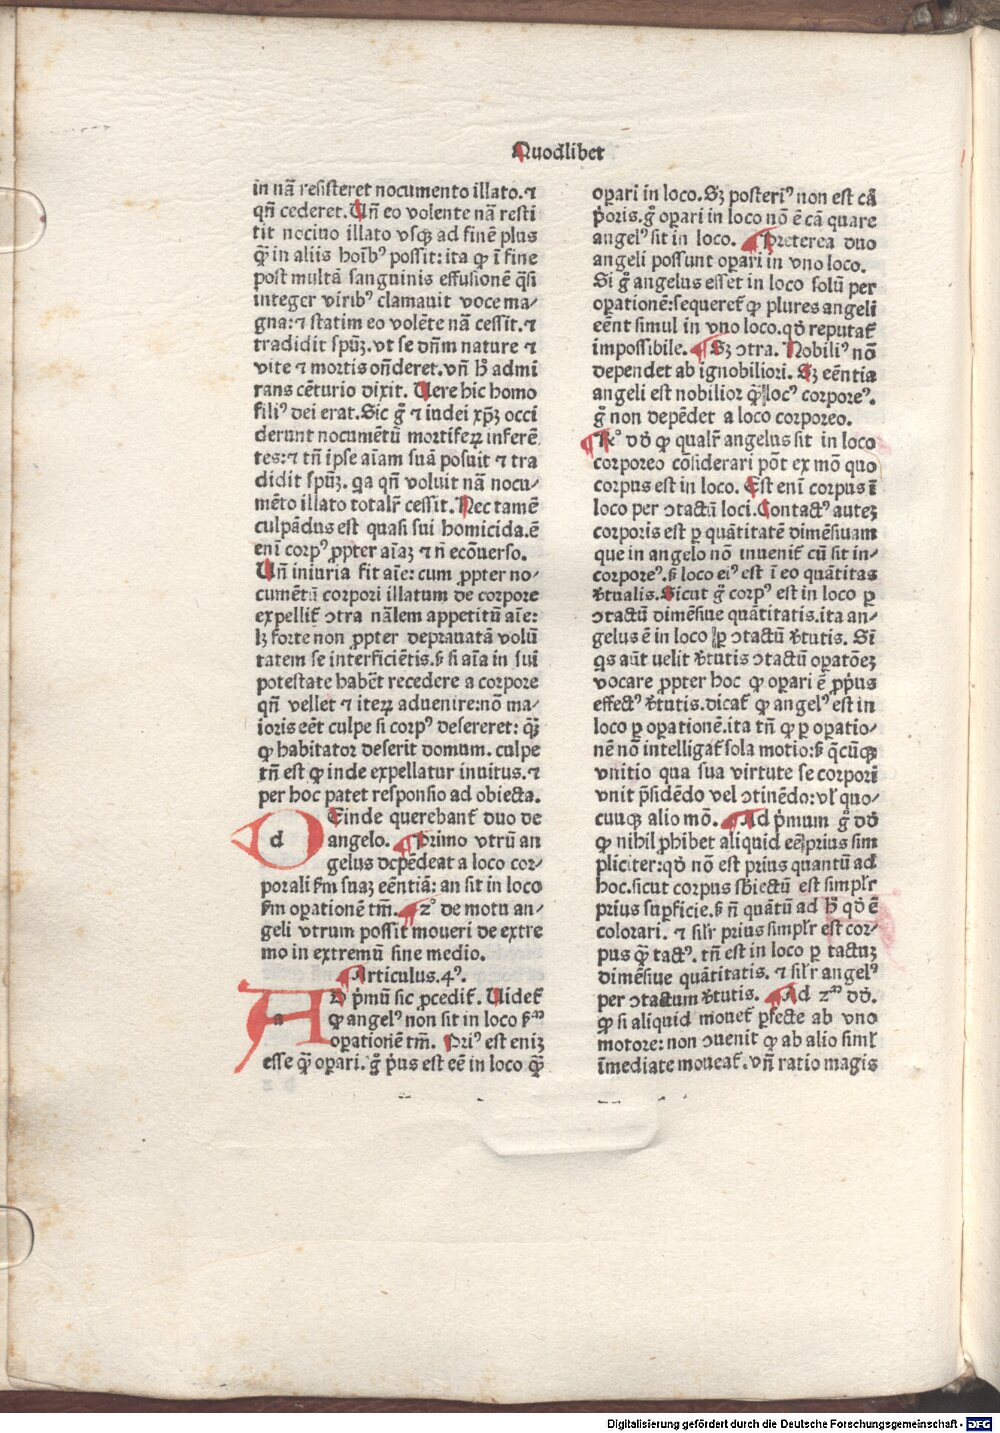 Quodlibet
in nā resisteret nocumento illato. ⁊
qñ cederet. Uñ eo volente nā resti
tit nociuo illato vsqꝫ ad finē plus
ꝙ̄ in aliis hoībꝰ possit: ita ꝙ ī fine
post multā sanguinis effusionē q̄si
integer viribꝰ clamauit voce ma⸗
gna: ⁊ statim eo volēte nā cessit. ⁊
tradidit spūꝫ. vt se dñm nature ⁊
vite ⁊ mortis oñderet. vñ h̄ admi
rans cēturio dixit. Uere hic homo
filiꝰ dei erat. Sic g̊ ⁊ iudei xp̄ꝫ occi
derunt nocumētū mortiferꝝ inferē
tes: ⁊ tñ ip̄se aīam suā posuit ⁊ tra
didit spūꝫ. qa qñ voluit nā nocu⸗
mēto illato totalr̄ cessit. Nec tamē
culpādus est quasi sui homicida. ē
enī corpꝰ ꝓpter aīaꝫ ⁊ ñ ecōuerso.
Uñ iniuria fit aīe: cum ꝓpter no⸗
cumētū corpori illatum de corpore
expellit᷑ ↄtra nālem appetitū aīe:
lꝫ forte non ꝓpter deprauatā volū
tatem se interficiētis. ß si aīa in sui
potestate habēt recedere a corpore
qñ vellet ⁊ iteꝝ aduenire: nō ma⸗
ioris eēt culpe si corpꝰ desereret: q̄ꝫ
ꝙ habitator deserit domum. culpe
tñ est ꝙ inde expellatur inuitus. ⁊
per hoc patet responsio ad obiecta.
d Einde querebant᷑ duo de
angelo. ¶ Primo vtrū an
gelus depēdeat a loco cor⸗
porali ẜm suaꝫ eēntiā: an sit in loco
ẜm oꝑationē tm̄. ¶ 2° de motu an⸗
geli vtrum possit moueri de extre
mo in extremū sine medio.
¶ Articulus. 4ꝰ.
a D pͥmū sic ꝓcedit᷑. Uidet᷑
ꝙ angelꝰ non sit in loco ẜm
oꝑationē tm̄. Priꝰ est eniꝫ
esse ꝙ̄ oꝑari. g̊ pͥus est eē in loco ꝙ̄
oꝑari in loco. Sꝫ posteriꝰ non est cā
pͥoris. g̊ oꝑari in loco nō ē cā quare
angelꝰ sit in loco. ¶ Preterea duo
angeli possunt oꝑari in vno loco.
Si g̊ angelus esset in loco solū per
oꝑationē: sequeret᷑ ꝙ plures angeli
eēnt simul in vno loco. qđ reputat᷑
impossibile. ¶ Sꝫ ↄtra. Nobiliꝰ nō
dependet ab ignobiliori. Sꝫ eēntia
angeli est nobilior ꝙ̄ locꝰ corporeꝰ.
g̊ non depēdet a loco corporeo.
¶ R° đđ ꝙ qualr̄ angelus sit in loco
corporeo cōsiderari pōt ex mō quo
corpus est in loco. Est enī corpus ī
loco per ↄtactū loci. Contactꝰ auteꝫ
corporis est ꝑ quātitatē dimēsiuam
que in angelo nō inuenit᷑ cū sit in⸗
corporeꝰ. ß loco eiꝰ est ī eo quātitas
v̄tualis. Sicut g̊ corpꝰ est in loco ꝑ
ↄtactū dimēsiue quātitatis. ita an⸗
gelus ē in loco ꝑ ↄtactū v̄tutis. Si
qs aūt uelit v̄tutis ↄtactū oꝑatōeꝫ
vocare ꝓpter hoc ꝙ oꝑari ē ꝓpͥus
effectꝰ v̄tutis. dicat᷑ ꝙ angelꝰ est in
loco ꝑ oꝑationē. ita tñ ꝙ ꝑ oꝑatio⸗
nē nō intelligat᷑ sola motio: ß q̄cūqꝫ
vnitio qua sua virtute se corpori
vnit p̄sidēdo vel ↄtinēdo: vl̄ quo⸗
cuuqꝫ alio mō. ¶ Ad pͥmum g̊ đđ
ꝙ nihil ꝓhibet aliquid eē prius sim
pliciter: qđ nō est prius quantū ad
hoc. sicut corpus sb̄iectū est simplr̄
prius suꝑficie. ß ñ quātū ad h̄ qđ ē
colorari. ⁊ silr̄ prius simplr̄ est cor⸗
pus ꝙ̄ tactꝰ. tñ est in loco ꝑ tactuꝫ
dimēsiue quātitatis. ⁊ silr̄ angelꝰ
per ↄtactum v̄tutis. ¶ Ad 2ᵐ đđ.
ꝙ si aliquid mouet᷑ ꝑfecte ab vno
motore: non ↄuenit ꝙ ab alio siml̄
īmediate moueat᷑. vñ ratio magis
Digitalisierung gefördert durch die Deutsche Forschungsgemeinschaft - DFG